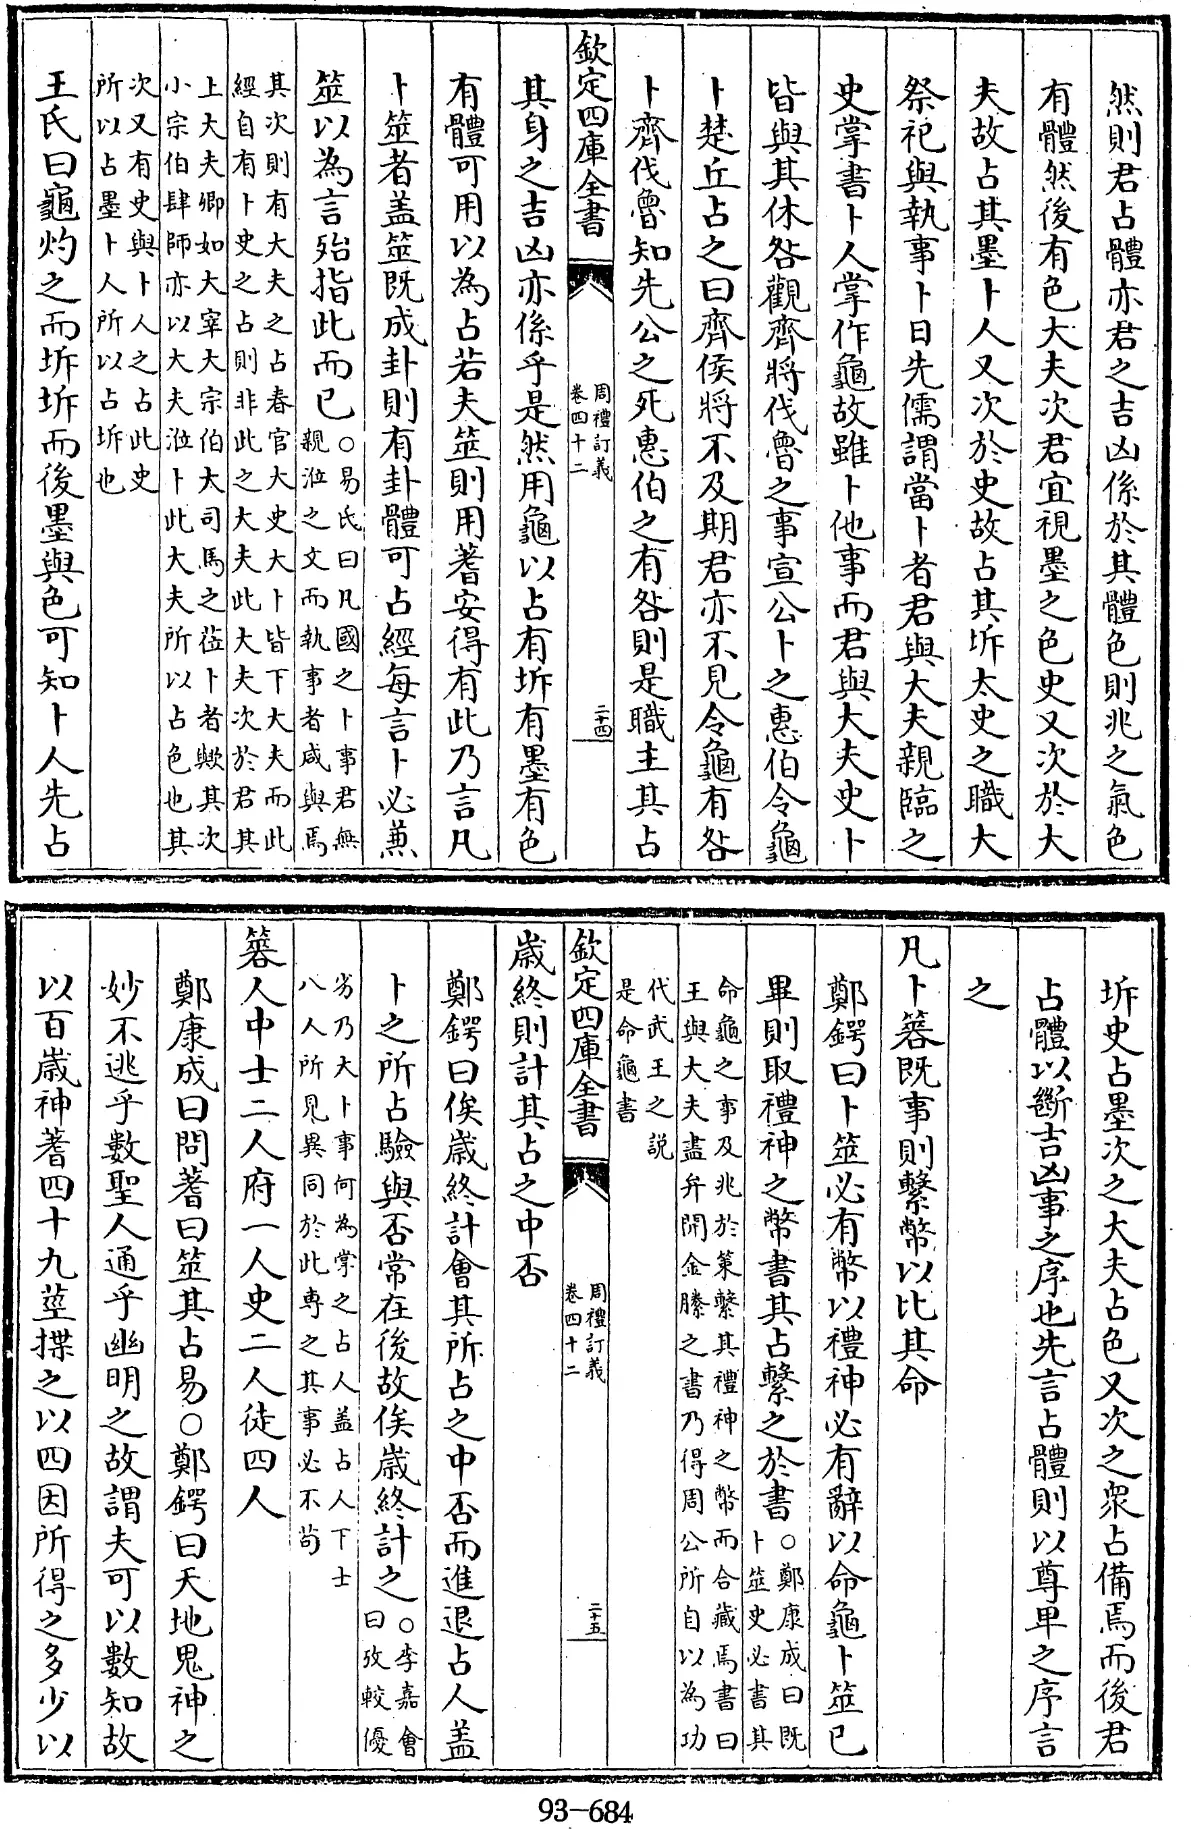 然則君占體亦君之吉凶係於其體色則兆之氣色
有體然後有色大夫次君宜視墨之色史又次於大
夫故占其墨卜人又次於史故占其坼太史之職大
祭祀與執事卜日先儒謂當卜者君與大夫親臨之
史掌書卜人掌作龜故雖卜他事而君與大夫史卜
皆與其休咎觀齊將伐魯之事宣公卜之惠伯令龜
卜楚丘占之曰齊侯將不及期君亦不見令龜有咎
卜齊伐魯知先公之死惠伯之有咎則是職主其占
欽定四庫全書
周禮訂義
卷四十二
二十四
其身之吉凶亦係乎是然用龜以占有坼有墨有色
有體可用以為占若夫筮則用蓍安得有此乃言凡
卜筮者盖筮既成卦則有卦體可占經每言卜必兼
筮以為言殆指此而已○易氏曰凡國之卜事君無
親涖之文而執事者咸與焉
其次則有大夫之占春官大史大卜皆下大夫而此
經自有卜史之占則非此之大夫此大夫次於君其
上大夫卿如大宰大宗伯大司馬之蒞卜者歟其次
小宗伯肆師亦以大夫涖卜此大夫所以占色也其
次又有史與卜人之占此史
所以占墨卜人所以占坼也
王氏曰龜灼之而坼坼而後墨與色可知卜人先占
坼史占墨次之大夫占色又次之衆占備焉而後君
占體以斷吉凶事之序也先言占體則以尊卑之序言
之
凡卜簭既事則繫幣以比其命
鄭鍔曰卜筮必有幣以禮神必有辭以命龜卜筮已
畢則取禮神之幣書其占繫之於書○鄭康成曰既
卜筮史必書其
命龜之事及兆於策繫其禮神之幣而合藏焉書曰
王與大夫盡弁開金縢之書乃得周公所自以為功
代武王之説
是命龜書
欽定四庫全書
周禮訂義
卷四十二
二十五
歲終則計其占之中否
鄭鍔曰俟歲終計會其所占之中否而進退占人盖
卜之所占驗與否常在後故俟歲終計之○李嘉會
曰攷較優
劣乃大卜事何為掌之占人盖占人下士
八人所見異同於此專之其事必不茍
簭人中士二人府一人史二人徒四人
鄭康成曰問蓍曰筮其占易○鄭鍔曰天地鬼神之
妙不逃乎數聖人通乎幽明之故謂夫可以數知故
以百歲神蓍四十九莖揲之以四因所得之多少以
93-684